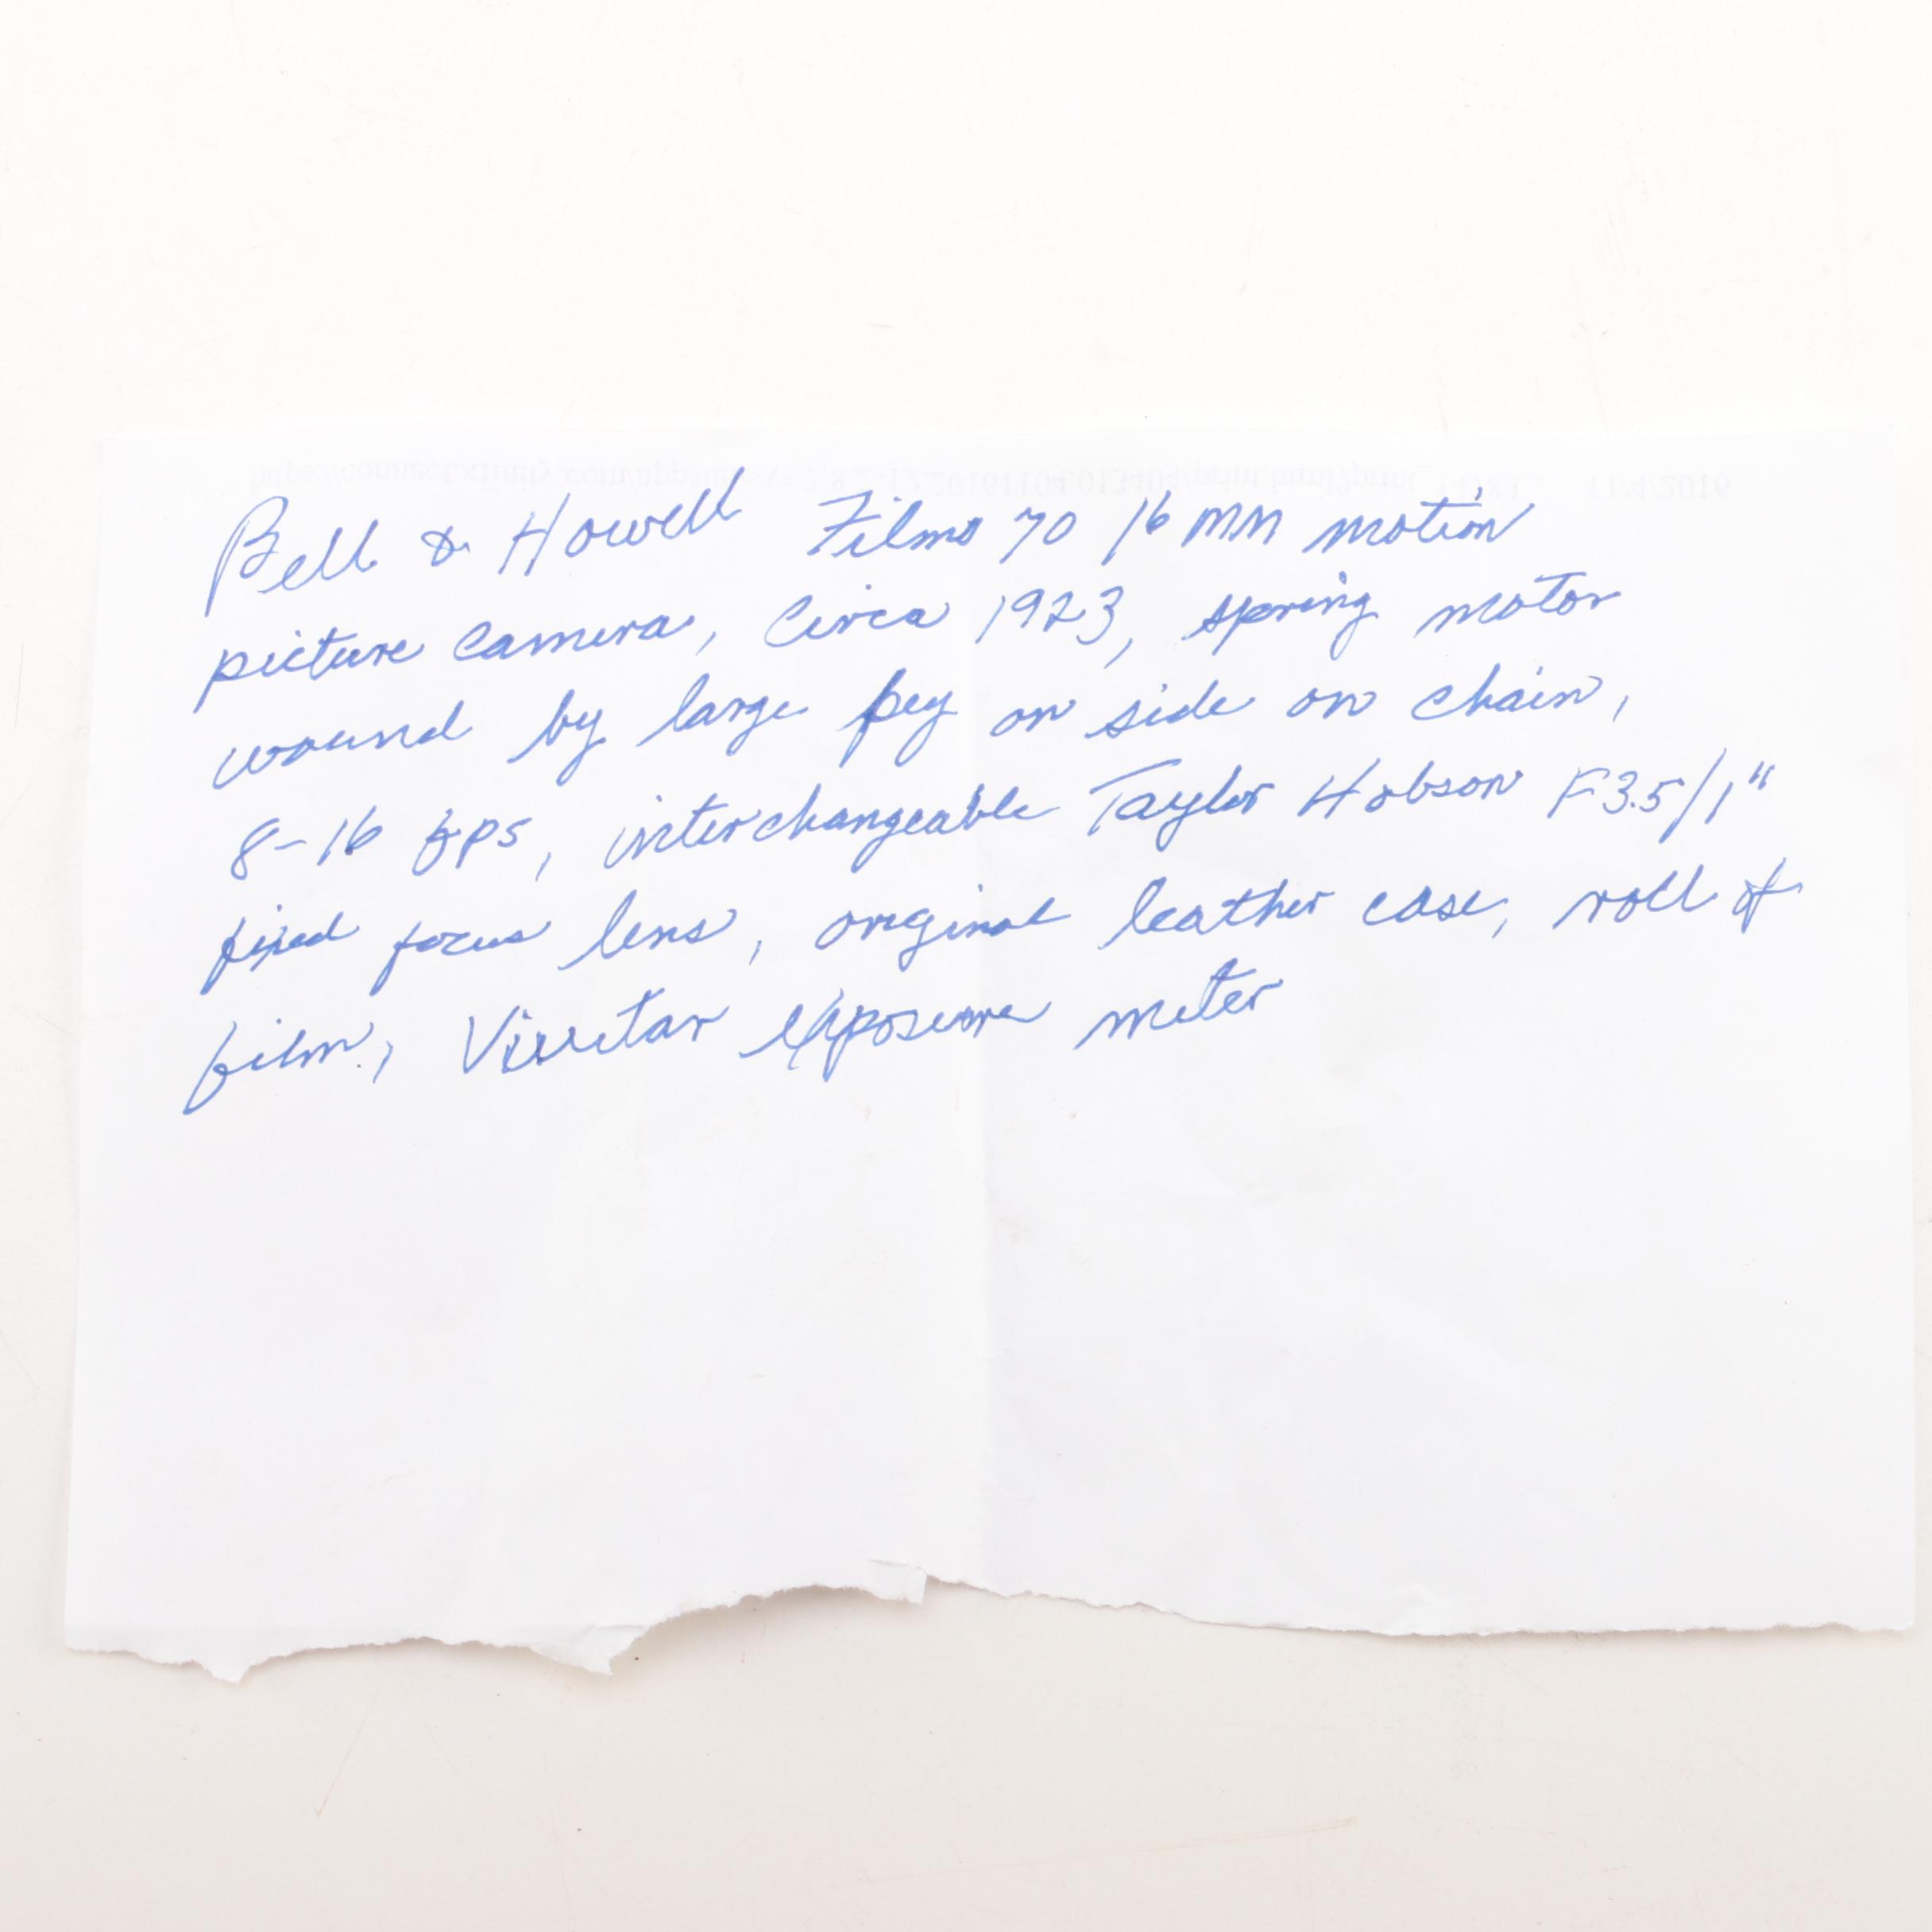 Bell & Howell Filmo 70 16 MM motion
picture camera, Circa 1923, spring motor
wound by large key on side on chain,
8-16 fps, interchangeable Taylor Hobson F3.5/1"
fixed focus lens, original leather case, roll of
film, Vivitar exposure meter